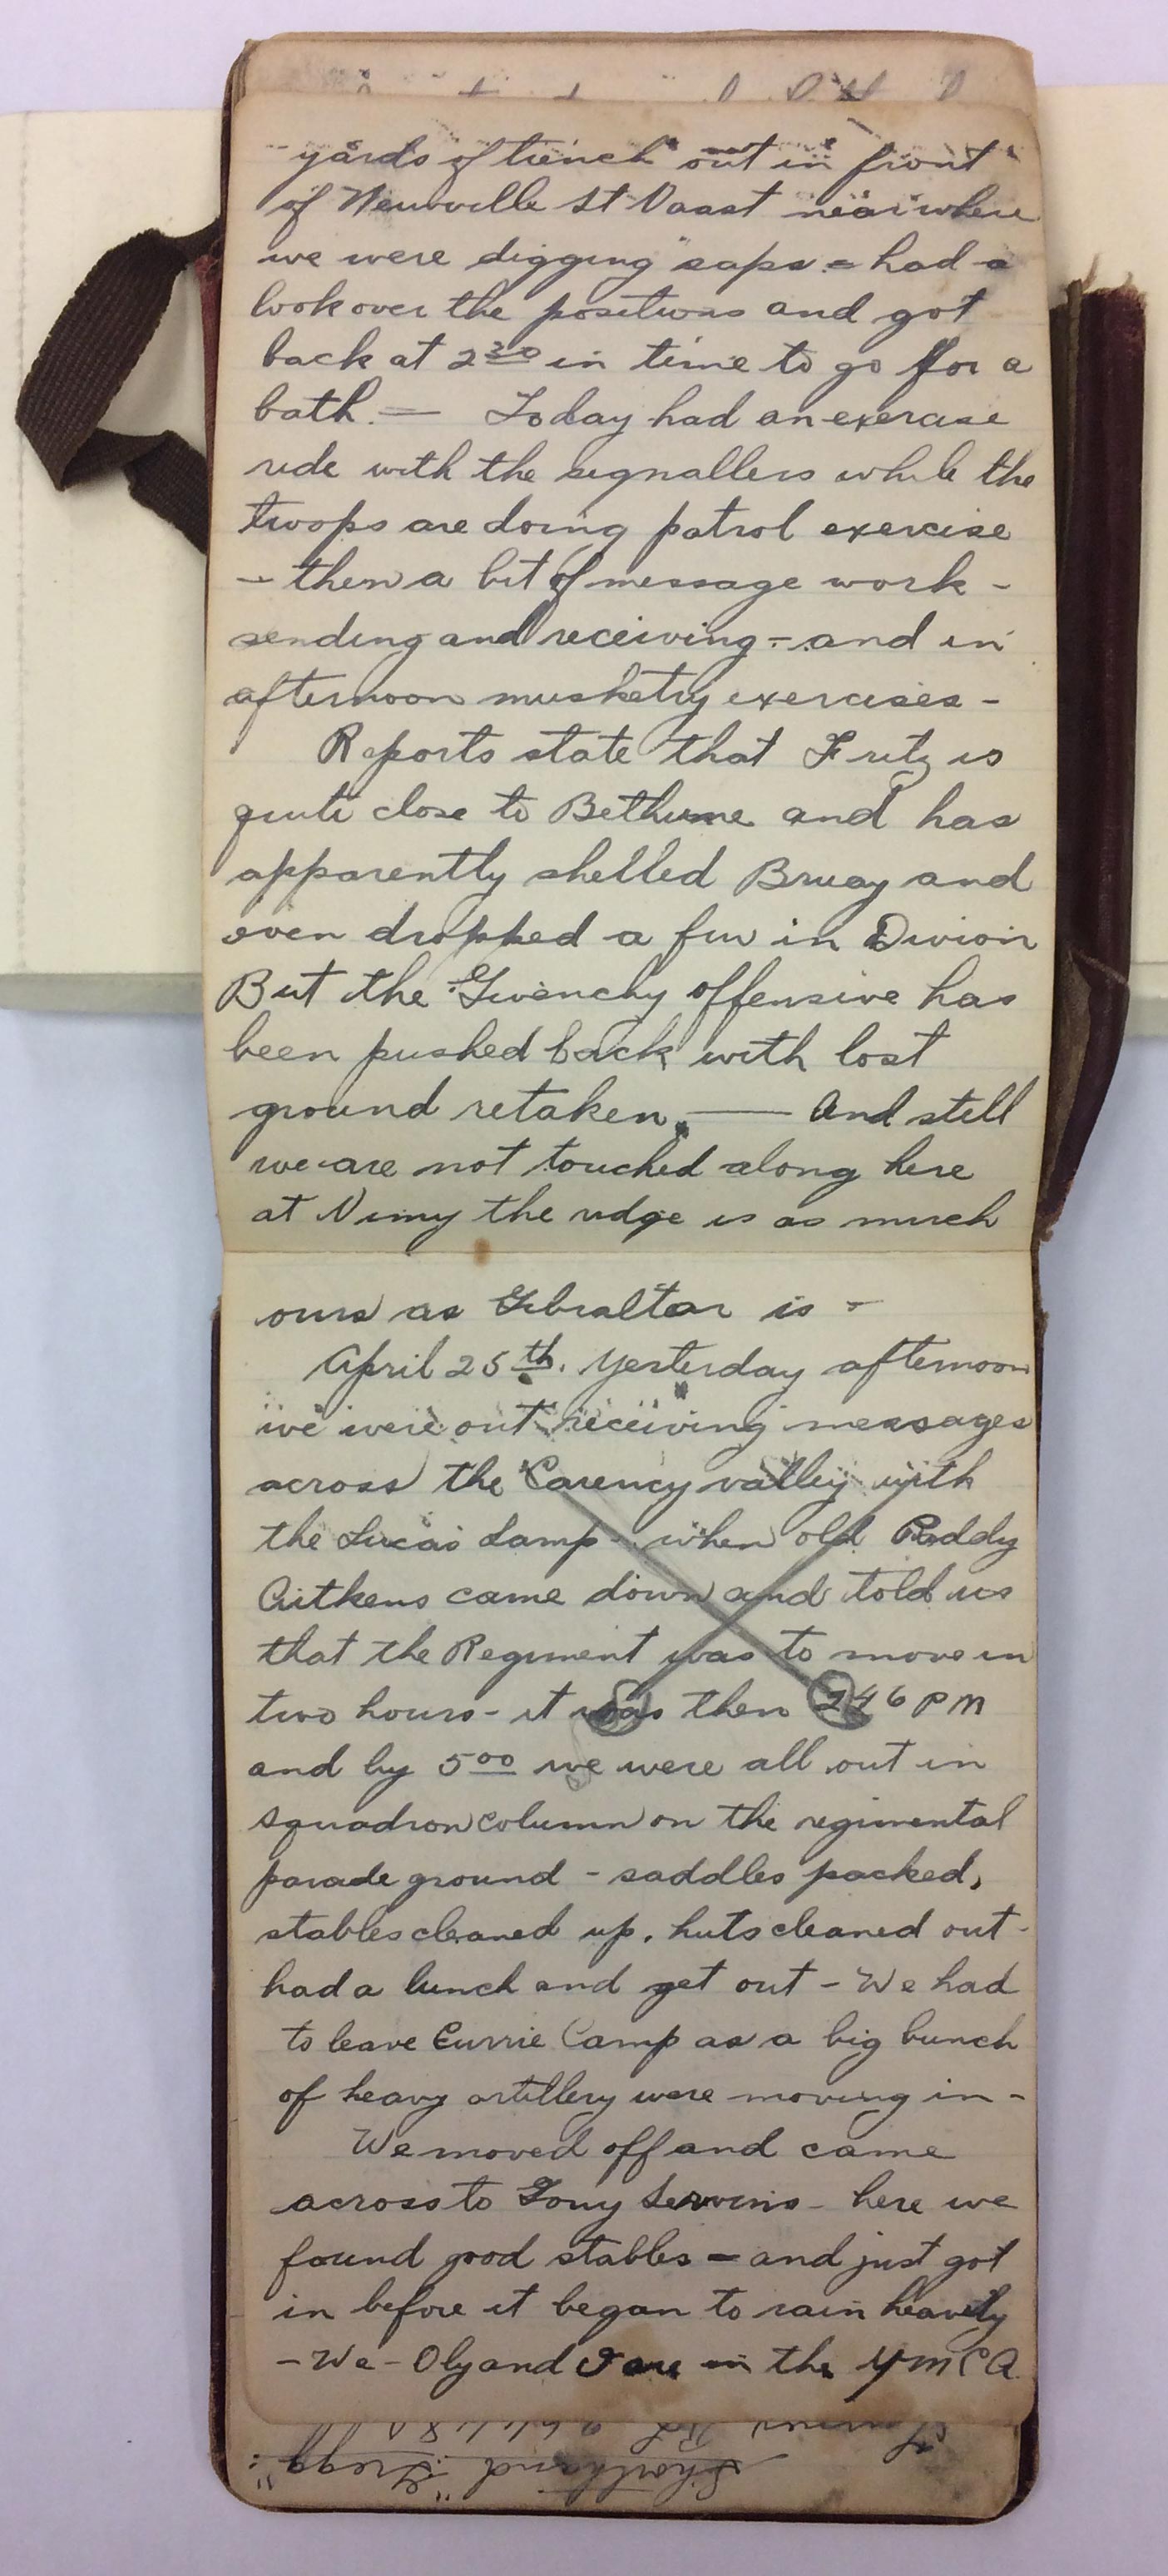 yards of trench out in front
of Neuvville St Vaast near where
we were digging saps - had a
look over the positions and got
back at 2 30 in time to go for a
bath. — Today had an exercise
ride with the signallers while the
troops are doing patrol exercise
- then a bit of message work -
sending and receiving - and in
afternoon musketry exercises -
Reports state that Fritz is
quite close to Bethune and has
apparently shelled Bruay and
even dropped a few in Divion
But the Givenchy offensive has
been pushed back with lost
ground retaken. — And still
we are not touched along here
at Vimy the ridge is as much
ours as Gibraltar is -
April 25th. Yesterday afternoon
we were out receiving messages
across the Carency valley with
the Lucas Lamp - when old Paddy
Aitkens came down and told us
that the Regiment was to move in
two hours - it was then 2 46 PM
and by 5 00 we were all out in
squadron column on the regimental
parade ground - saddles packed,
stables cleaned up, huts cleaned out -
had a lunch and get out - We had
to leave Currie Camp as a big bunch
of heavy artillery were moving in -
We moved off and came
across to Gouy Servins - here we
found good stables - and just got
in before it began to rain heavily
- We - Oly and I are in the YMCA
Shorthand "Gregg"